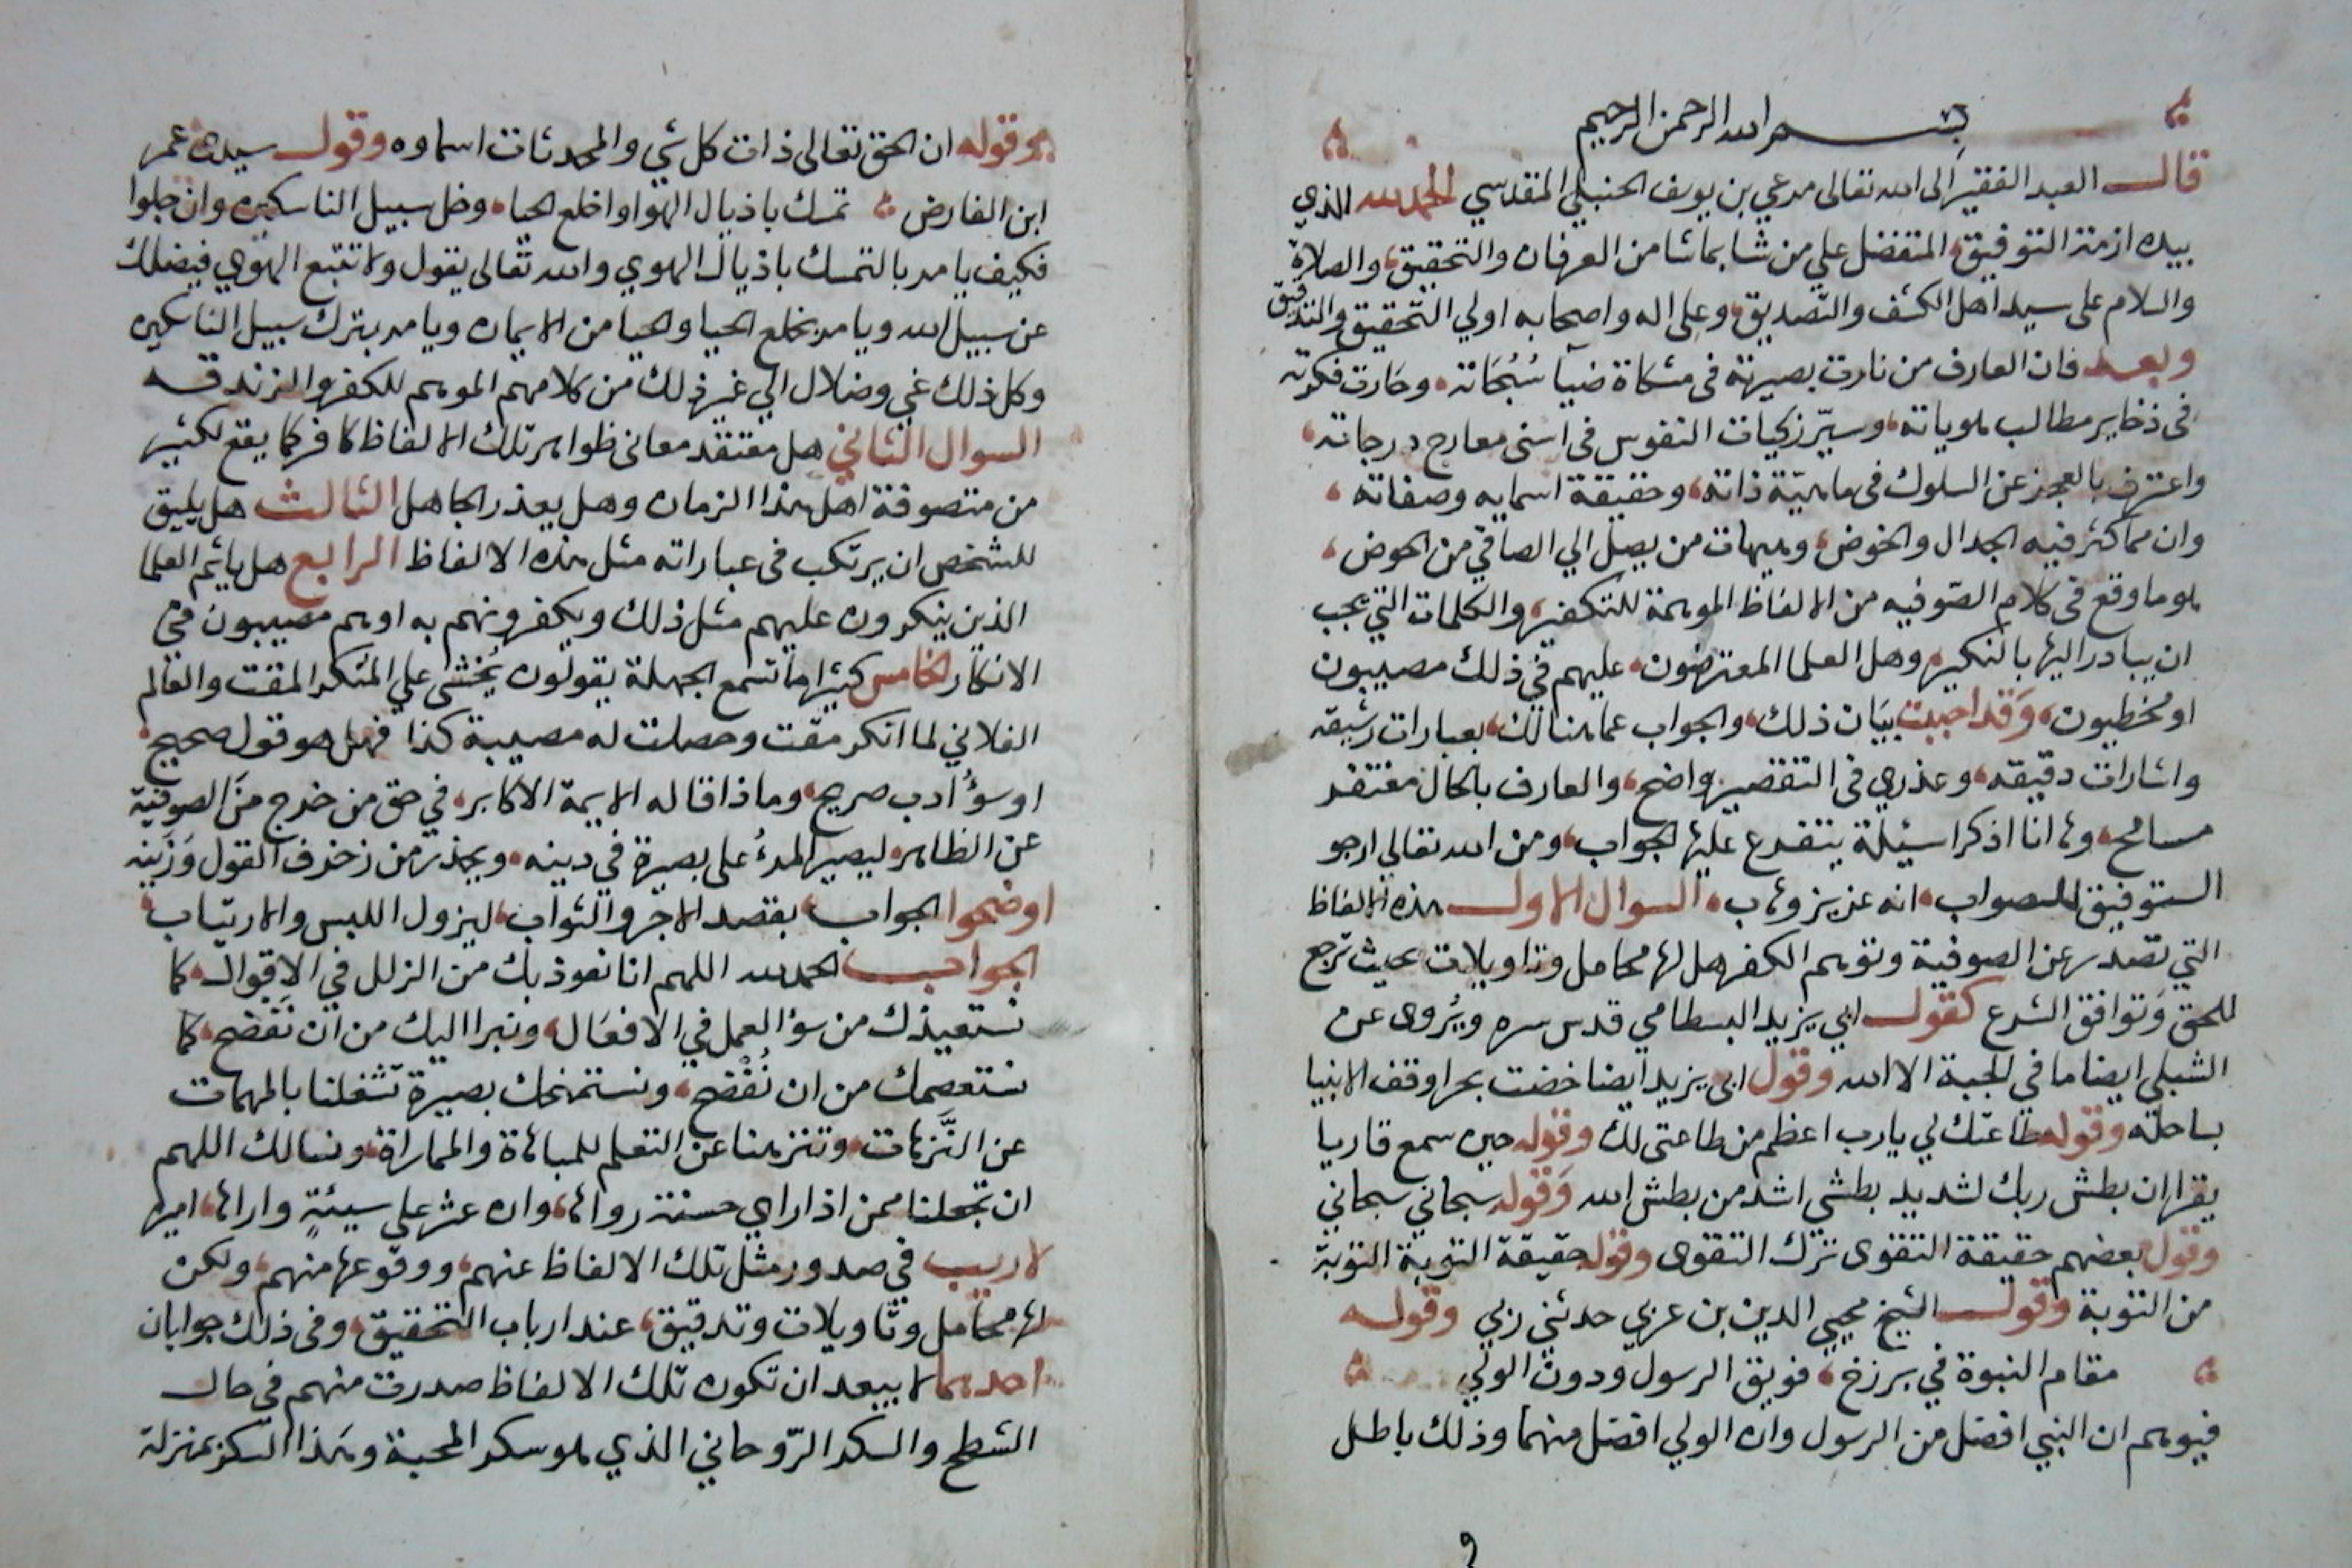 بسم الله الرحمن الرحيم
قال العبد الفقير الى الله تعالى مرعي بن يوسف الحنبلي المقدسي الحمد لله الذي
بيده ازمة التوفيق، المتفضل علي من شا بما شا من العرفان والتحقيق، والصلاة
والسلام على سيد اهل الكشف والتصديق، وعلى اله واصحابه اولي التحقيق والتدقيق
وبعد فان العارف من نارت بصيرته في مشكاة ضيآ سُبُحَاته، وحَارت فكرته
في ذخاير مطالب هوياته، وسيّر زكيات النفوس في اسنى معارج درجاته،
واعترف بالعجز عن السلوك في ماهيّة ذاته، وحقيقة اسمايه وصفاته،
وان مما كثر فيه الجدال والخوض، وهيهات من يصل الي الصافي من الحوض،
هو ما وقع في كلام الصّوفيه من الالفاظ الموهمة للتكفير، والكلمات التي يجب
ان يبادر اليها بالنكير، وهل العلما المعترضون، عليهم في ذلك مصيبون
او مخطيون، وَقد احببت بيَان ذلك، والجواب عما هنالك، بعبارات رشيقه
واشارات دقيقه، وعذري في التقصير واضح، والعارف بالحال مفتقد
مسامح، وها انا اذكر اسيلة يتفرع عليها الجواب، ومن الله تعالى ارجو
التوفيق للصواب، انه عزيز وهاب، السوال الاول هذه الالفاظ
التي تصدر عن الصوفية وتوهم الكفر هل لها محامل وتاويلات بحيث ترجع
للحق وَتوافق الشرع كقول ابي يزيد البسطامي قدس سره ويُروى عن
الشبلي ايضا ما في الجبة الا الله وقول ابي يزيد ايضا خضت بحرا وقف الانبيا
بساحله وقوله طاعتك لي يارب اعظم من طاعتي لك وقوله حين سمع قاريا
يقرا ان بطش ربك لشديد بطشي اشد من بطش الله وَقوله سبحاني سبحاني
وقول بعضهم حقيقة التقوى ترك التقوى وقوله حقيقة التوبة التوبة
من التوبة وقول الشيخ محيي الدين بن عربي حدثني ربي وقوله
مقام النبوة في برزخ، فويق الرسول ودون الولي
فيوهم ان النبي افضل من الرسول وان الولي افضل منهما وذلك باطل
وقوله ان الحق تعالى ذات كل شي والمحدثات اسماوه وقول سيدي عمر
ابن الفارض، تمسك باذيال الهوا واخلع الحيا، وخل سبيل الناسكين وان جلوا
فكيف يامر بالتمسك باذيال الهوي والله تعالى يقول ولا تتبع الهوي فيضلك
عن سبيل الله ويامر بخلع الحيا والحيا من الايمان ويامر بترك سبيل الناسكين
وكل ذلك غي وضلال الي غير ذلك من كلامهم الموهم للكفر والزندقه
السوال الثاني هل معتقد معاني ظواهر تلك الالفاظ كافر كما يقع لكثير
من متصوفة اهل هذا الزمان وهل يعذر الجاهل الثالث هل يليق
للشخص ان يرتكب في عباراته مثل هذه الالفاظ الرابع هل ياثم العلما
الذين ينكرون عليهم مثل ذلك ويكفرونهم به او هم مصيبون في
الانكار الخامس كثيرا ما تسمع الجهلة يقولون يُخشى علي المنكر المقت والعالم
الفلاني لما انكر مقت وحصلت له مصيبة كذا فهل هو قول صحيح
او سؤُ ادب صريح، وما ذا قاله الايمة الاكابر، في حق من خرج منَ الصوفية
عن الظاهر، ليصير المرءُ على بصيرة في دينه، ويحذر من زخرف القول وَزَينه
اوضحوا الجواب، بقصد الاجر والثواب، ليزول اللبس والارتياب
الجواب الحمد لله اللهم انا نعوذ بك من الزلل في الاقوال، كما
نستعيذك من سؤ العمل في الافعَال، ونبرا اليك من ان نَفضح، كما
نستعصمك من ان نُفْضَح، ونستمنحك بصيرة تشغلنا بالمهمات
عن التُّرَهات، وتنزهنا عن التعلم للمباهاة والمماراة، ونسالك اللهم
ان تجعلنا ممن اذا راي حسنة رواها، وان عثر على سيئةٍ واراها، امين
لا ريب في صدور مثل تلك الالفاظ عنهم، ووقوعها منهم، ولكن
لها محامل وتاويلات وتدقيق، عند ارباب التحقيق، وفى ذلك جوابان
احدهما لا يبعد ان تكون تلك الالفاظ صدرت منهم في حال
الشطح والسكر الرّوحاني الذي هو سكر المحبة وهذا السكر بمنزلة